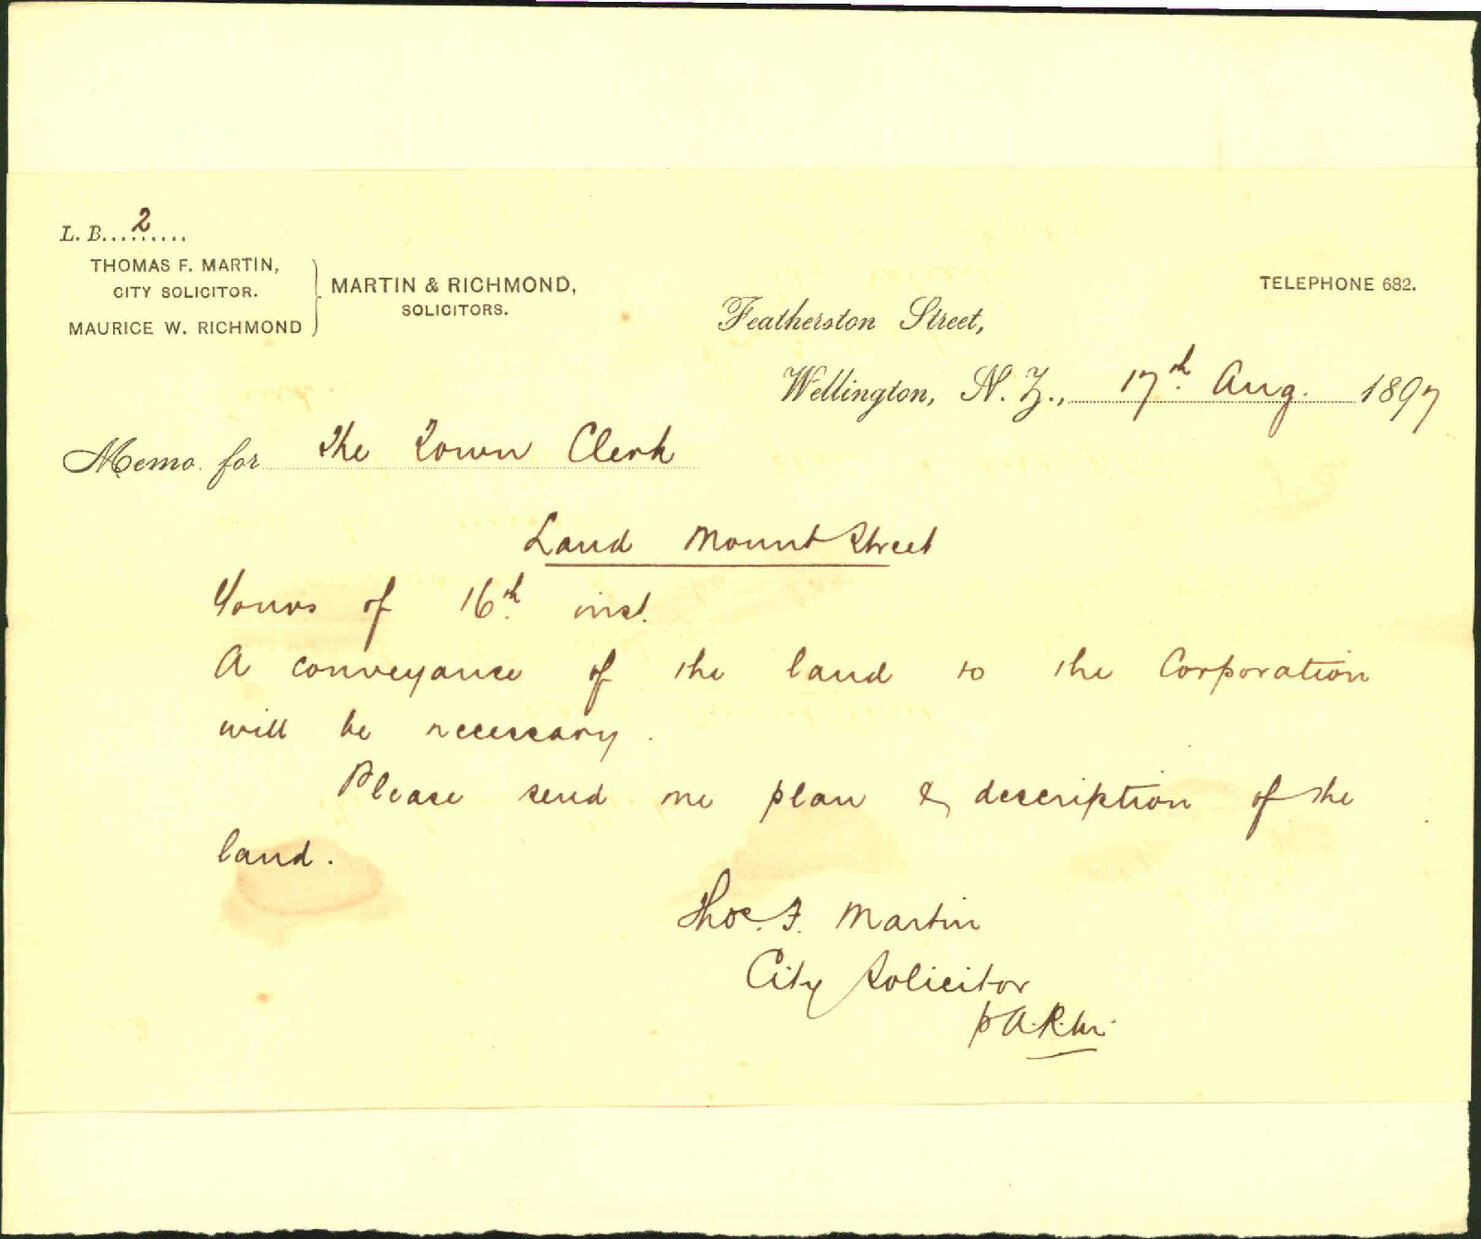 L. B. 2
THOMAS F. MARTIN,
CITY SOLICITOR.
MAURICE W. RICHMOND
MARTIN & RICHMOND,
SOLICITORS.
TELEPHONE 682.
Featherston Street,
Wellington, N. Z., 17th. Aug. 1897
Memo. for The Town Clerk
Land Mount Street
Yours of 16th. inst.
A conveyance of the land to the Corporation
will be necessary.
Please send me plan & description of the
land.
Thos. F. Martin
City Solicitor